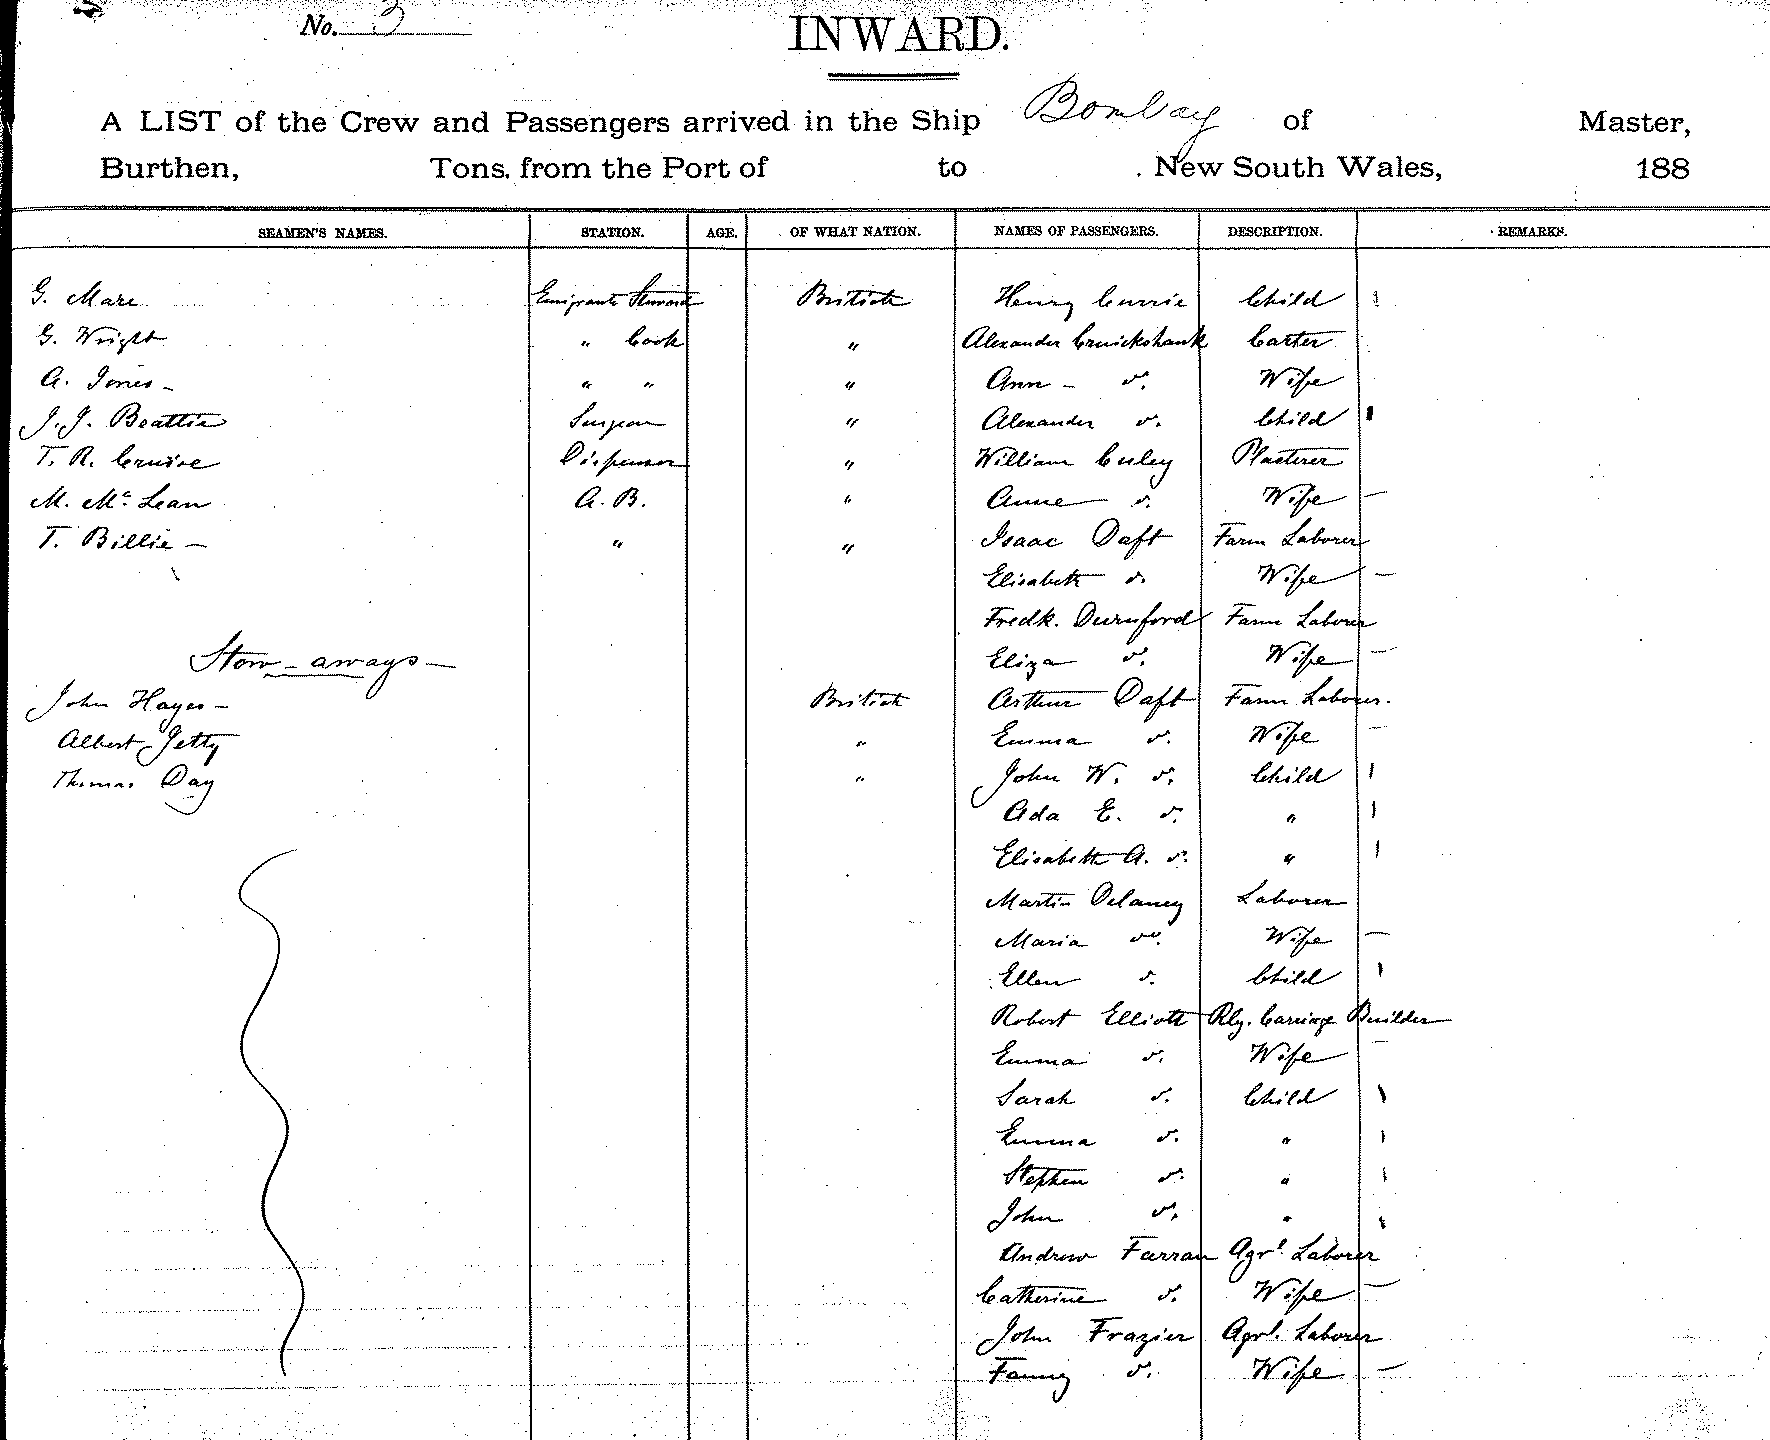 No. 3
INWARD.
A LIST of the Crew and Passengers arrived in the Ship Bombay of Master,
Burthen, Tons, from the Port of to New South Wales, 188
SEAMEN'S NAMES. STATION. AGE. OF WHAT NATION. NAMES OF PASSENGERS. DESCRIPTION. REMARKS.
G. Mare Emigrants Steward British Henry Currie Child
G. Wright " Cook " Alexander Cruickshank Carter
A. Jones - " " " Ann - do. Wife
J. J. Beattie Surgeon " Alexander do. Child
T. R. Cruise Dispenser " William Culey Plasterer
M. McLean A. B. " Anne do. Wife —
T. Billie — " " Isaac Daft Farm Laborer
Elisabeth do. Wife —
Fredk. Durnford Farm Laborer
Stow-aways — Eliza do. Wife —
John Hayes - British Arthur Daft Farm Laborer.
Albert Jetty " Emma do. Wife —
Thomas Day " John W. do. Child
Ada E. do. "
Elisabeth A. do. "
Martin Delaney Laborer
Maria do. Wife —
Ellen do. Child
Robert Elliott Rly. Carriage Builder
Emma do. Wife —
Sarah do. Child
Emma do. "
Stephen do. "
John do. "
Andrew Farran Agrl Laborer
Catherine do. Wife —
John Frazier Agrl. Laborer
Fanny do. Wife —